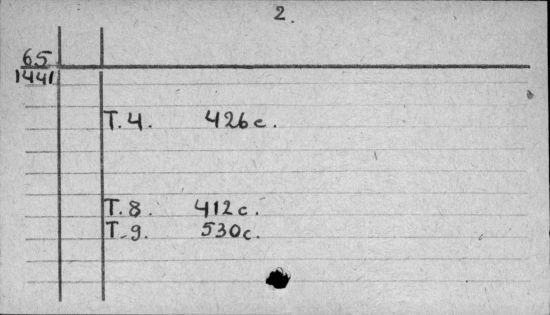 2.
65
1441
T. 4. 426 с.
T. 8. 412 с.
T. 9. 530 с.